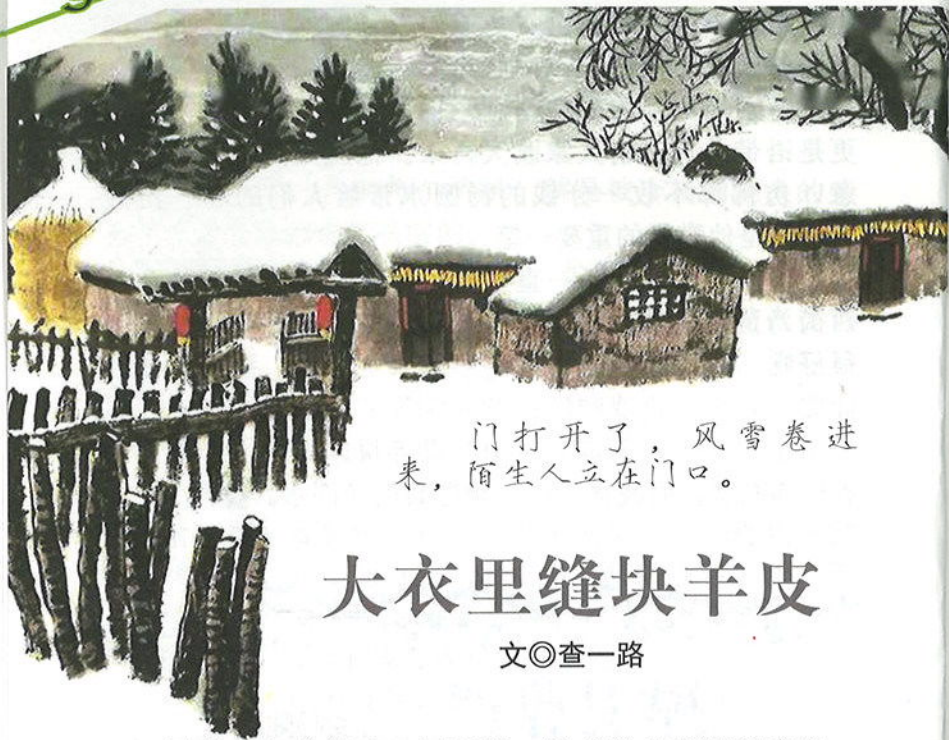 门打开了，风雪卷进
来，陌生人立在门口。
大衣里缝块羊皮
文◎查一路